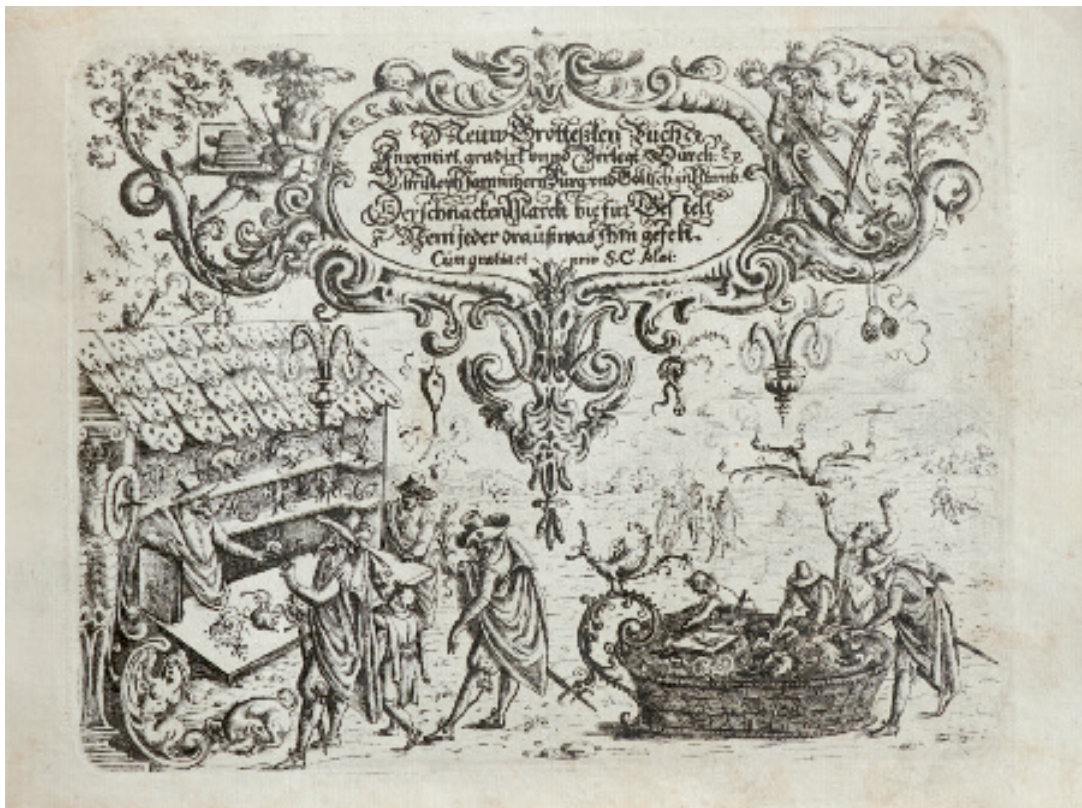 Neuw Grotteßken Buch
Inventirt gradirt unnd Verlegt Durch
Christoph Jamnitzern Burg. vnd Goltsch: in Nürmb.
Der schnacken Marck bin ich
Nem jeder drauß was Ihm gefelt.
Cum gratia et priv S. C. M